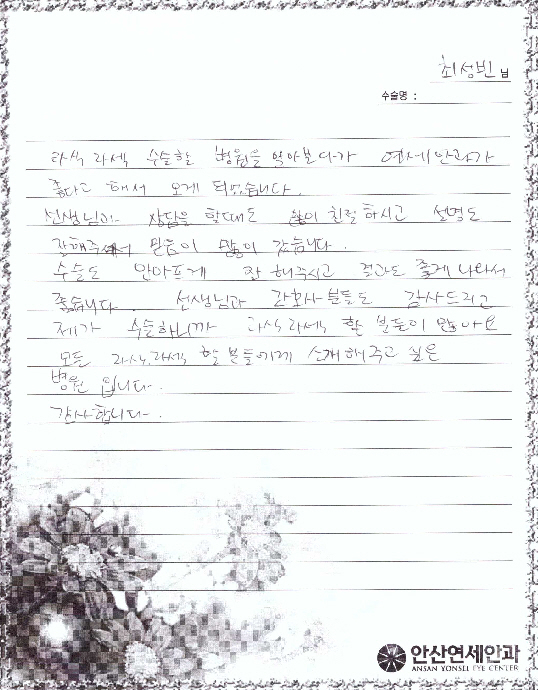 최성빈 님
수술명 :
라식 라섹 수술할 병원을 알아보다가 연세안과가
좋다고 해서 오게 되었습니다.
선생님과 상담을 할때도 많이 친절하시고 설명도
잘해주셔서 믿음이 많이 갔습니다.
수술도 안아프게 잘 해주시고 결과도 좋게 나와서
좋습니다. 선생님과 간호사분들도 감사드리고
제가 수술하니까 라식라섹 할 분들이 많아요
모든 라식,라섹 할 분들에게 소개해주고 싶은
병원 입니다.
감사합니다.
안산연세안과
ANSAN YONSEI EYE CENTER